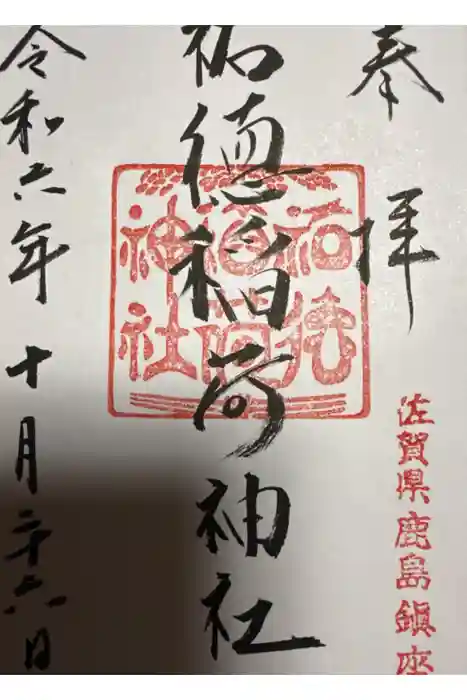 奉拝
佐賀県鹿島鎮座
祐徳稲荷神社
祐徳
稲荷
神社
令和六年十月二十六日